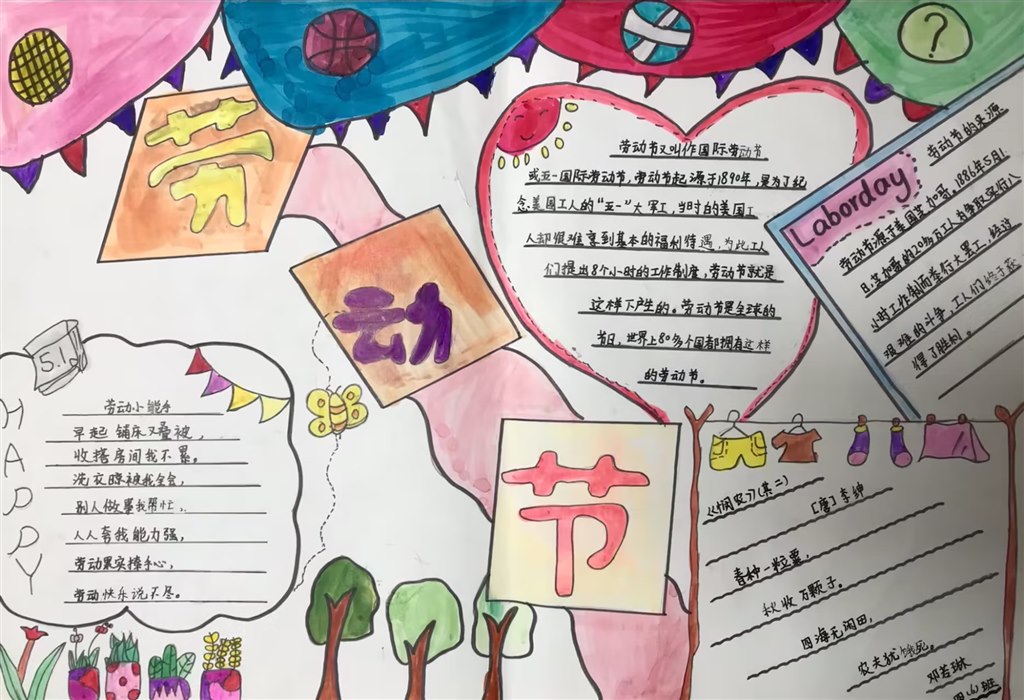 劳
动
节
?
劳动节又叫作国际劳动节
或五一国际劳动节，劳动节起源于1890年，是为了纪
念美国工人的“五一”大罢工，当时的美国工
人却很难享到基本的福利待遇，为此工人
们提出8个小时的工作制度，劳动节就是
这样下产生的。劳动节是全球的
节日，世界上80多个国都拥有这样
的劳动节。
Laborday
劳动节的来源
劳动节源于美国芝加哥。1886年5月1
日，芝加哥的20多万工人为争取实行八
小时工作制而举行大罢工，经过
艰难的斗争，工人们终于获
得了胜利。
5.1
HAPPY
劳动小能手
早起铺床又叠被，
收搭房间我不累。
洗衣晾被我全会，
别人做事我帮忙，
人人夸我能力强，
劳动果实捧手心，
劳动快乐说不尽。
《悯农》(其二)
[唐]李绅
春种一粒粟，
秋收万颗子。
四海无闲田，
农夫犹饿死。
邓若琳
班